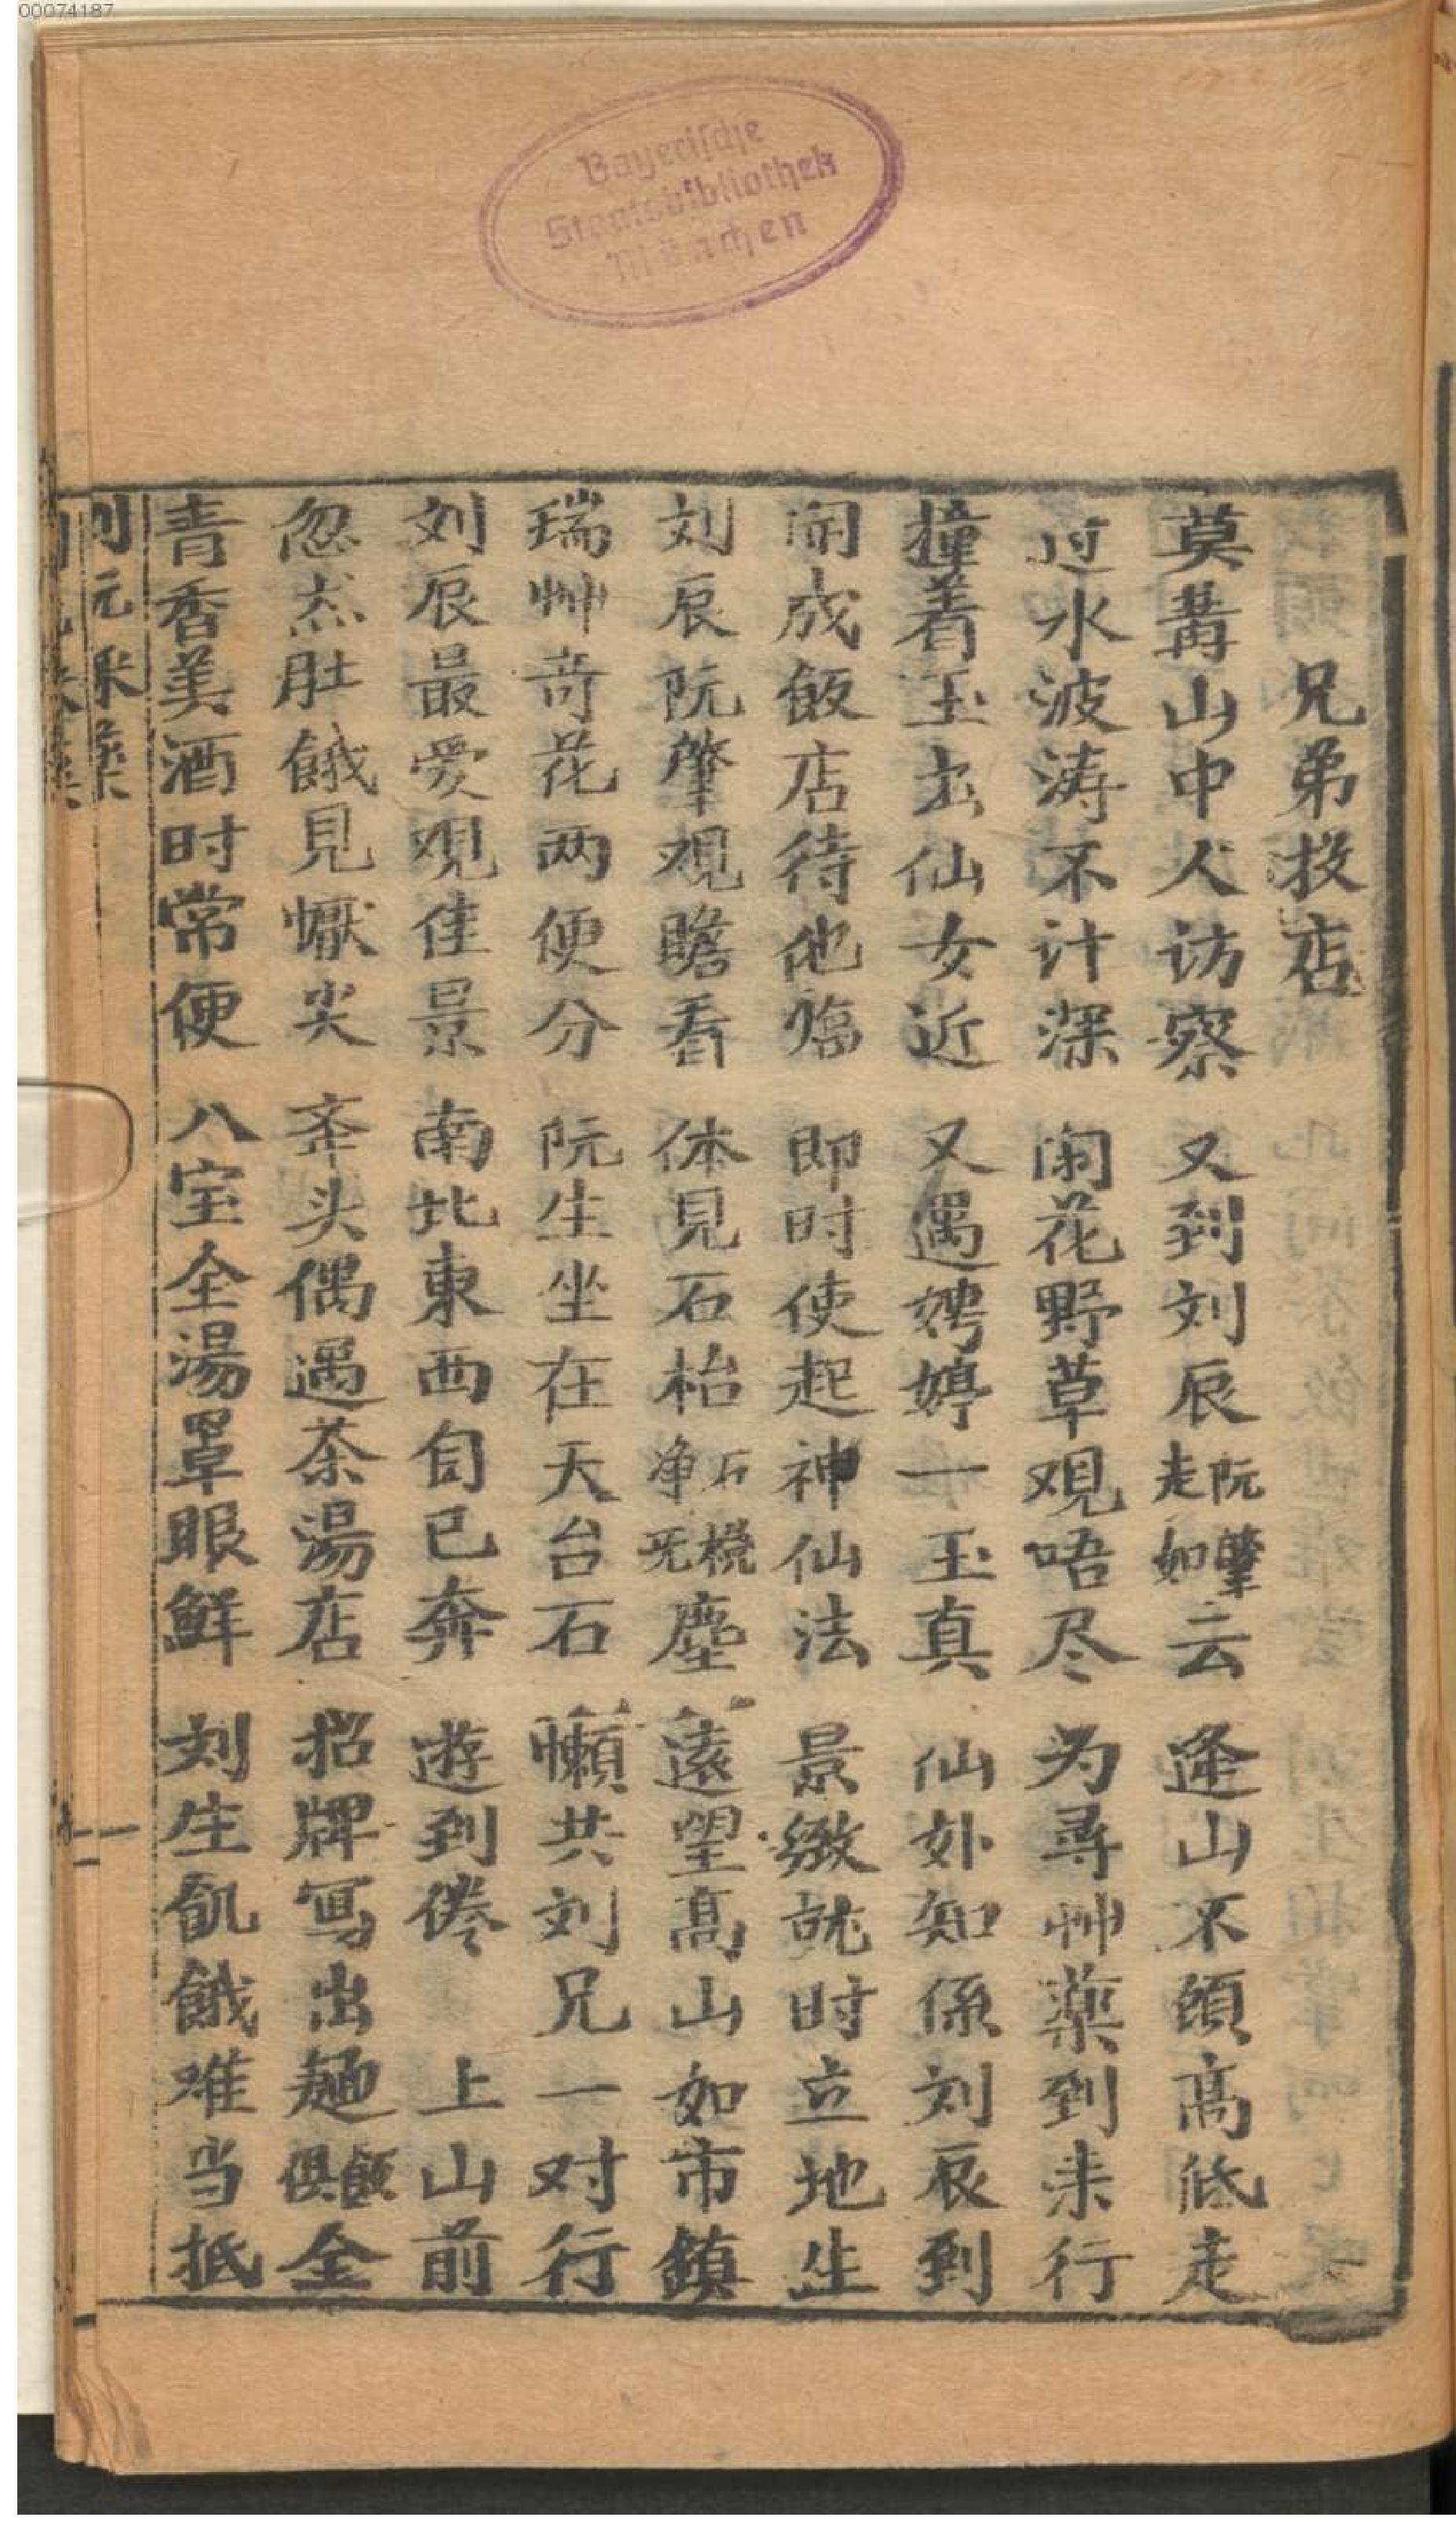 00074187
Bayerische
Staatsbibliothek
München
兄弟投店
莫講山中人访察 又到刘辰阮肇走如云 逢山不頋高低走
过水波涛不计深 闲花野草观唔尽 为尋艸薬到来行
撞着玉女仙女近 又遇娉婷一玉真 仙妁知係刘辰到
開成飯店待他臨 即时使起神仙法 景緻就时立地生
刘辰阮肇观瞻看 体见石枱石櫈净无塵 遠望高山如市鎮
瑞艸奇花两便分 阮生坐在天台石 懶共刘兄一对行
刘辰最爱观佳景 南北東西自己奔 遊到倦 上山前
忽然肚餓見懨尖 奔头偶遇茶湯店 招牌写出麺飯俱全
青香美酒时常便 八宝全湯罩眼鮮 刘生飢餓难当抵
刘元采薬